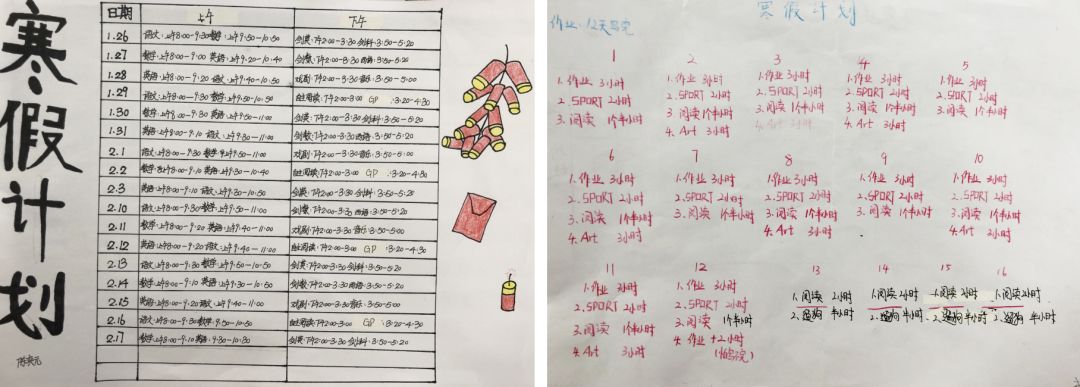 寒假计划
日期 上午 下午
1.26 语文:上午8:00-9:30数学:上午9:50-10:50 剑英:下午2:00-3:30 剑科:3:50-5:20
1.27 数学:上午8:00-9:00 英语:上午9:20-10:40 剑数:下午2:00-3:30 西语:3:50-5:20
1.28 英语:上午8:00-9:20 语文:上午9:40-10:50 戏剧:下午2:00-3:30音乐:3:50-5:00
1.29 语文:上午8:00-9:30 数学:上午9:50-10:50 自主阅读:下午2:00-3:00 GP :3:20-4:30
1.30 数学:上午8:00-9:10 英语:上午9:30-11:00 剑英:下午2:00-3:30剑科:3:50-5:20
1.31 英语:上午8:00-9:10 语文:上午9:30-11:00 剑数:下午2:00-3:30西语:3:50-5:20
2.1 语文:上午8:00-9:30 数学:上午9:50-11:00 戏剧:下午2:00-3:30音乐:3:50-5:00
2.2 数学:上午8:00-9:10 英语:上午9:30-10:40 自主阅读:下午2:00-3:00 GP :3:20-4:30
2.3 英语:上午8:00-9:10 语文:上午9:30-10:50 剑英:下午2:00-3:30 剑科:3:50-5:20
2.10 语文:上午8:00-9:30数学:上午9:50-11:00 剑数:下午2:00-3:30 西语:3:50-5:20
2.11 数学:上午8:00-9:20 英语:上午9:40-11:00 戏剧:下午2:00-3:30 音乐:3:50-5:00
2.12 英语:上午8:00-9:20 语文:上午9:40-11:00 自主阅读:下午2:00-3:00 GP :3:20-4:30
2.13 语文:上午8:00-9:30 数学:上午9:50-10:50 剑英:下午2:00-3:30 剑科:3:50-5:20
2.14 数学:上午8:00-9:10 英语:上午9:30-10:50 剑数:下午2:00-3:30 西语:3:50-5:20
2.15 英语:上午8:00-9:20语文:上午9:40-11:00 戏剧:下午2:00-3:30 音乐:3:50-5:00
2.16 语文:上午8:00-9:30数学:9:50-10:50 自主阅读:下午2:00-3:00 GP :3:20-4:30
2.17 数学:上午8:00-9:10英语:9:30-10:30 剑英:下午2:00-3:30剑科:3:50-5:20
寒假计划
作业:12天写完
1 2 3 4 5
1.作业 3小时 1.作业 3小时 1.作业 3小时 1.作业 3小时 1.作业 3小时
2.SPORT 2小时 2.SPORT 2小时 2.SPORT 2小时 2.SPORT 2小时 2.SPORT 2小时
3.阅读 1个半小时 3.阅读 1个半小时 3.阅读 1个半小时 3.阅读 1个半小时 3.阅读 1个半小时
4.Art 3小时 4.Art 3小时 4.Art 3小时
6 7 8 9 10
1.作业 3小时 1.作业 3小时 1.作业 3小时 1.作业 3小时 1.作业 3小时
2.SPORT 2小时 2.SPORT 2小时 2.SPORT 2小时 2.SPORT 2小时 2.SPORT 2小时
3.阅读 1个半小时 3.阅读 1个半小时 3.阅读 1个半小时 3.阅读 1个半小时 3.阅读 1个半小时
4.Art 3小时 4.Art 3小时 4.Art 3小时
11 12 13 14 15 16
1.作业 3小时 1.作业 3小时 1.阅读 2小时 1.阅读 2小时 1.阅读 2小时 1.阅读 2小时
2.SPORT 2小时 2.SPORT 2小时 2.遛狗 半小时 2.遛狗 半小时 2.遛狗 半小时 2.遛狗 半小时
3.阅读 1个半小时 3.阅读 1个半小时
4.Art 3小时 4.作业 +2小时